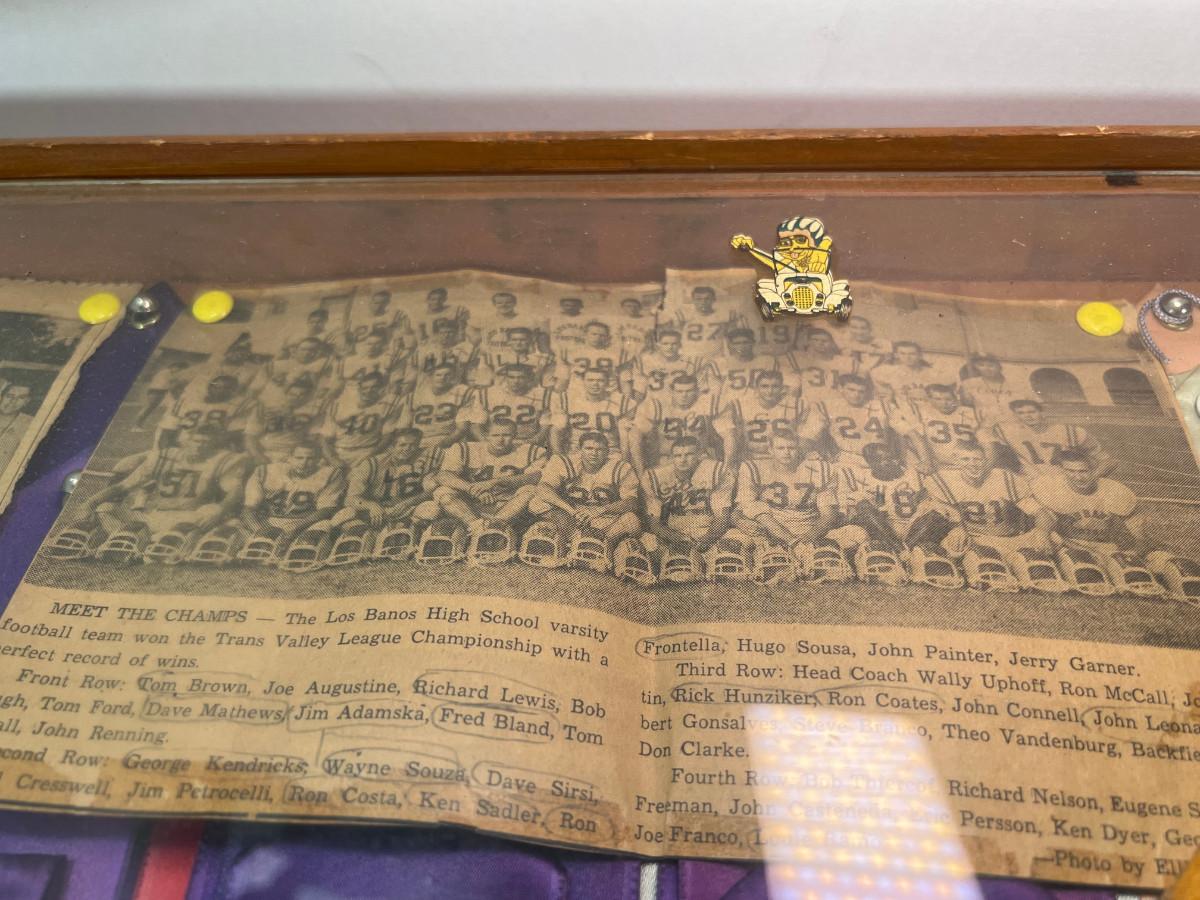 MEET THE CHAMPS — The Los Banos High School varsity
football team won the Trans Valley League Championship with a
perfect record of wins.
Front Row: Tom Brown, Joe Augustine, Richard Lewis, Bob
Tom Ford, Dave Mathews, Jim Adamska, Fred Bland, Tom
John Renning.
Row: George Kendricks, Wayne Souza, Dave Sirsi,
Cresswell, Jim Petrocelli, Ron Costa, Ken Sadler, Ron
Frontella, Hugo Sousa, John Painter, Jerry Garner.
Third Row: Head Coach Wally Uphoff, Ron McCall,
tin, Rick Hunziker, Ron Coates, John Connell, John
bert Gonsalves, Steve Branco, Theo Vandenburg,
Don Clarke.
Fourth Row: Bob Richard Nelson, Eugene
Freeman, John Castenella, Eric Persson, Ken Dyer,
Joe Franco,
—Photo by
27
19
39
37
50
31
38
40
23
22
20
24
35
17
51
49
16
37
18
21